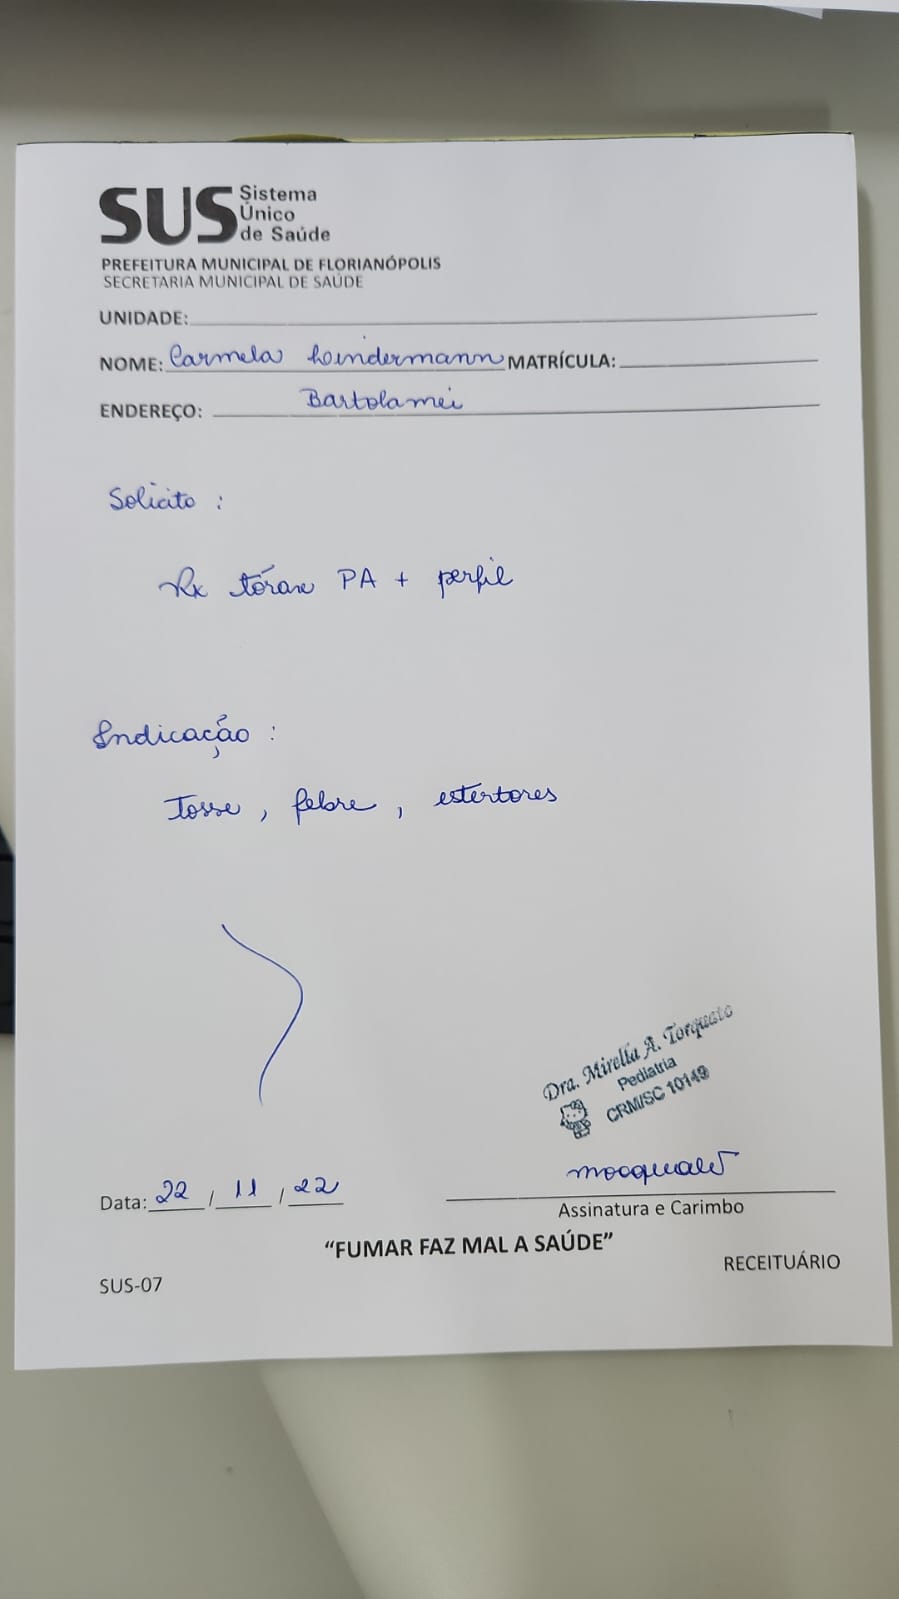 SUS Sistema
Único
de Saúde
PREFEITURA MUNICIPAL DE FLORIANÓPOLIS
SECRETARIA MUNICIPAL DE SAÚDE
UNIDADE:
NOME: Carmela Leindermann MATRÍCULA:
ENDEREÇO: Bartolamei
Solicito :
Rx tórax PA + perfil
Indicação :
Tosse , febre , estertores
Dra. Mirella A. Torquato
Pediatria
CRM/SC 10149
Data: 22 / 11 / 22
Assinatura e Carimbo
“FUMAR FAZ MAL A SAÚDE”
RECEITUÁRIO
SUS-07